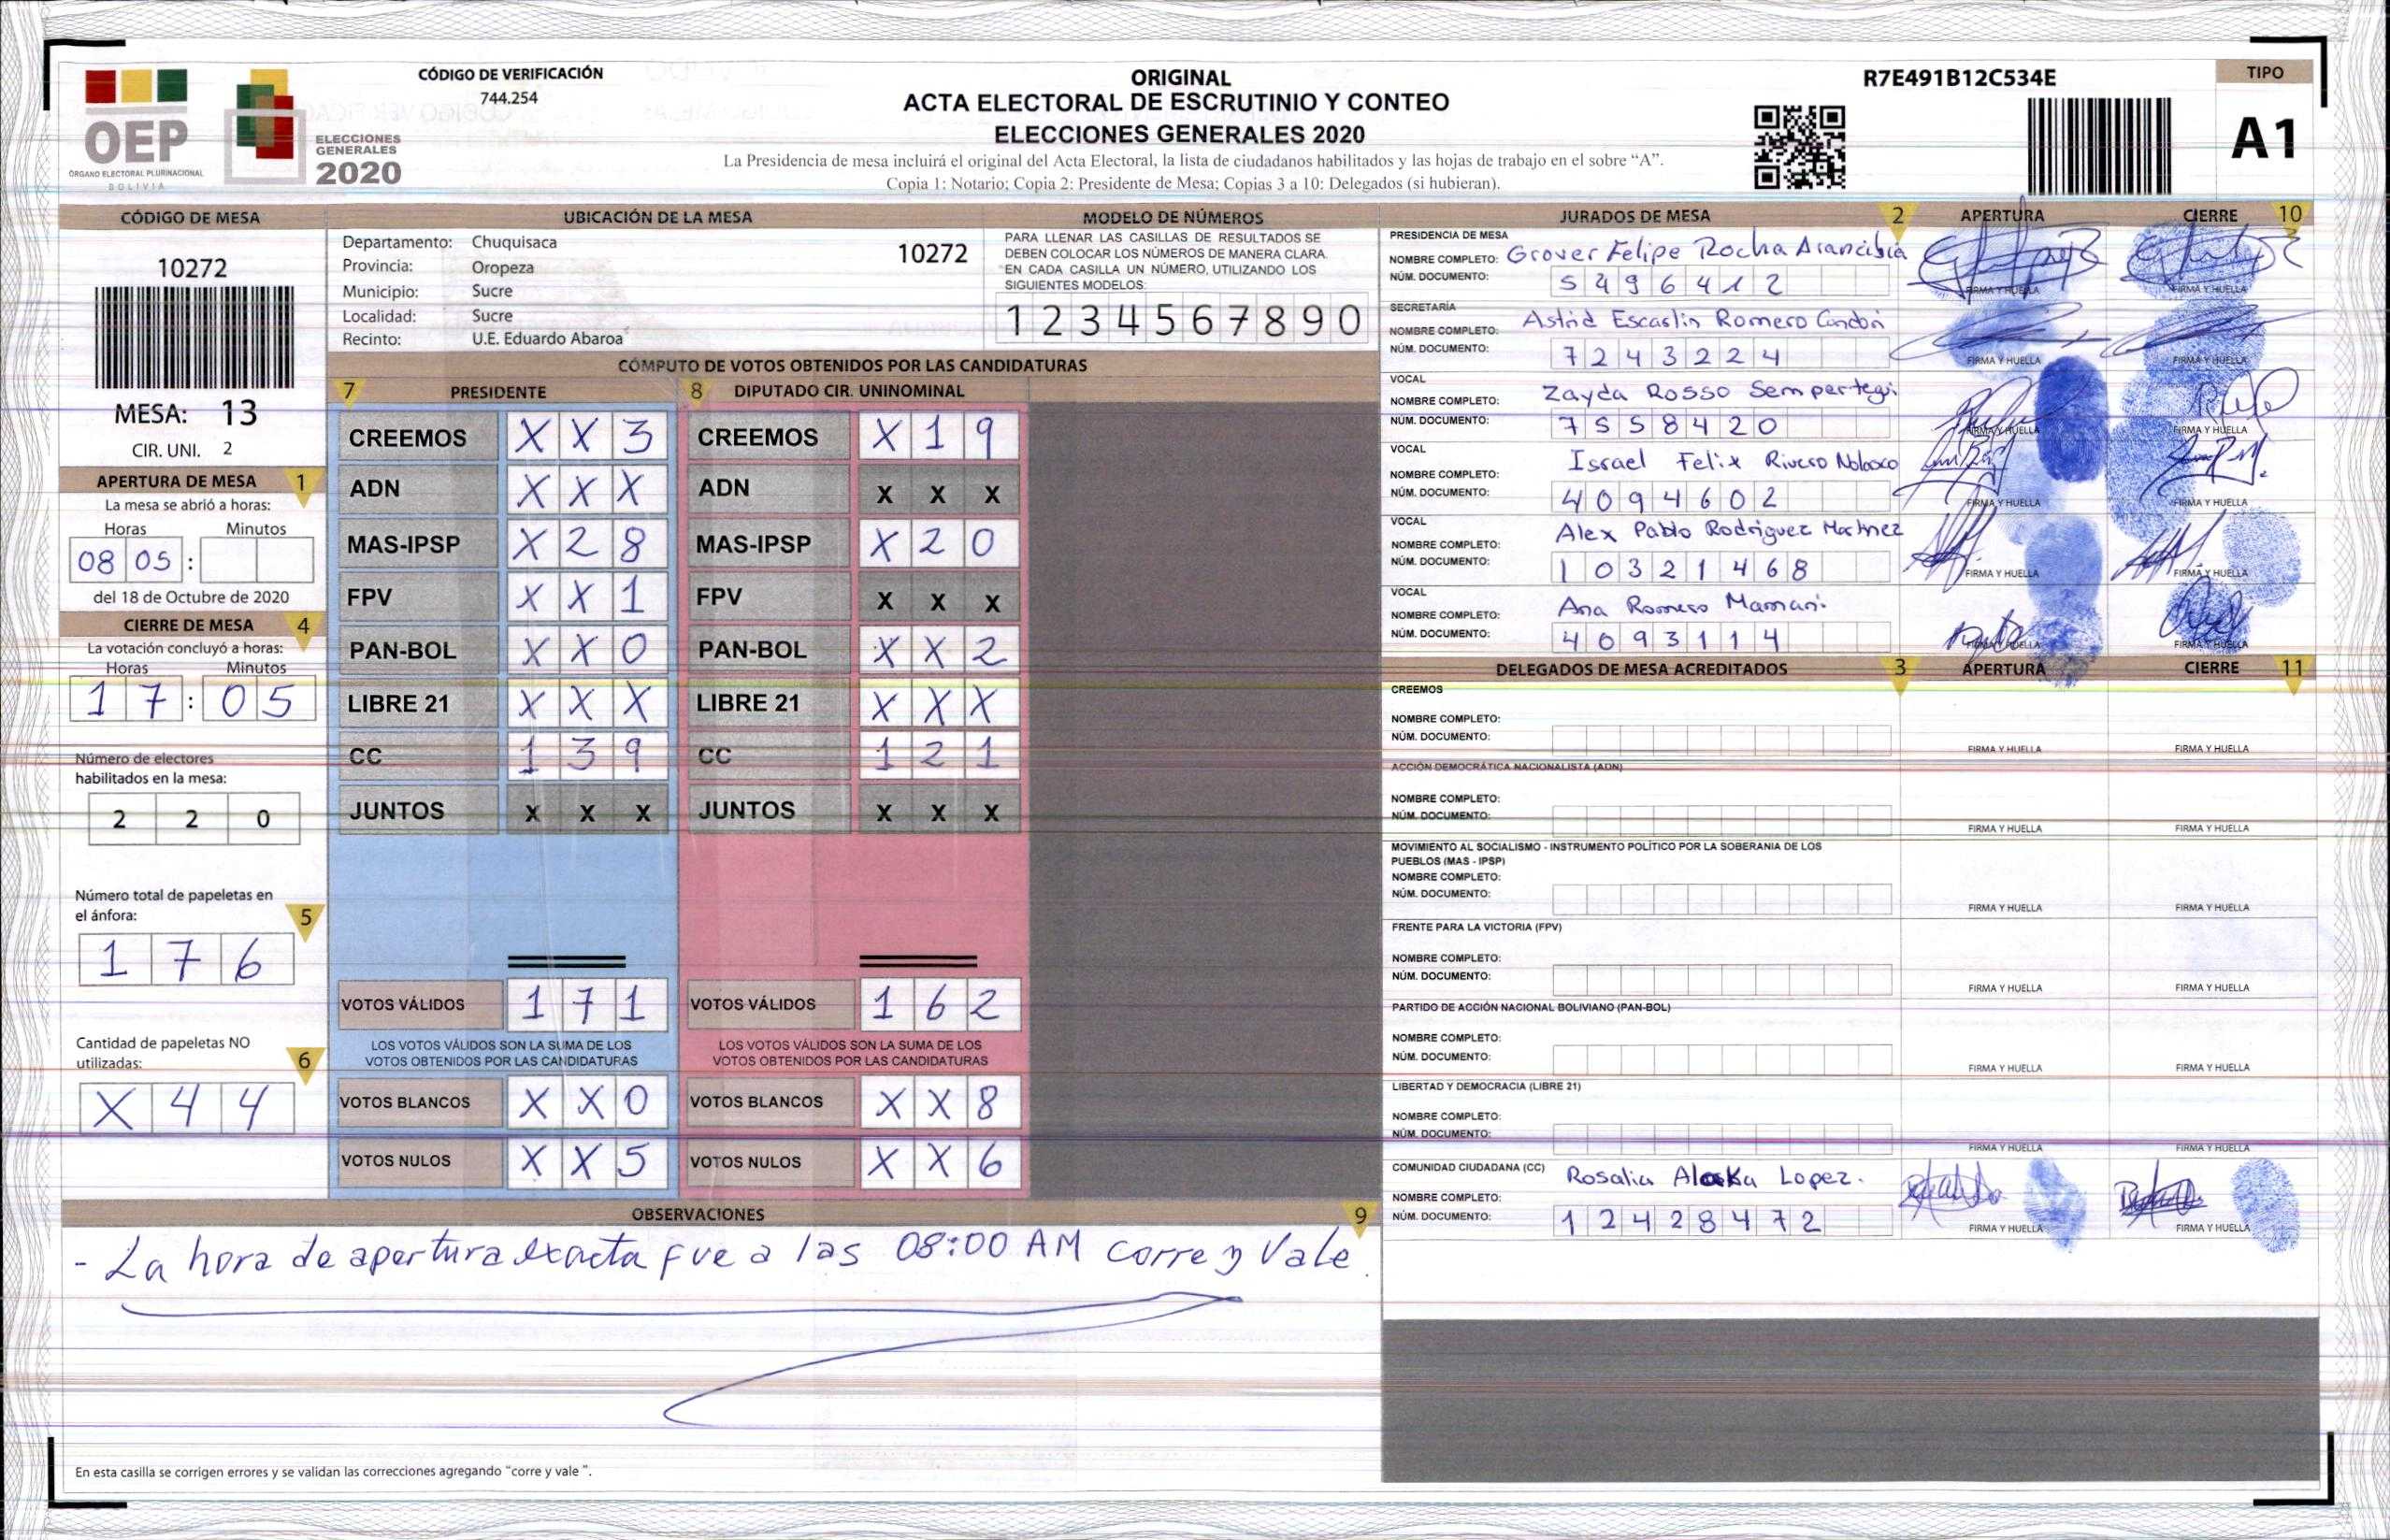 CÓDIGO DE VERIFICACIÓN
744.254
OEP
ÓRGANO ELECTORAL PLURINACIONAL
BOLIVIA
ELECCIONES
GENERALES
2020
ORIGINAL
ACTA ELECTORAL DE ESCRUTINIO Y CONTEO
ELECCIONES GENERALES 2020
La Presidencia de mesa incluirá el original del Acta Electoral, la lista de ciudadanos habilitados y las hojas de trabajo en el sobre “A”.
Copia 1: Notario; Copia 2: Presidente de Mesa; Copias 3 a 10: Delegados (si hubieran).
R7E491B12C534E
TIPO
A1
CÓDIGO DE MESA
10272
MESA: 13
CIR. UNI. 2
APERTURA DE MESA 1
La mesa se abrió a horas:
Horas Minutos
08 05 :
del 18 de Octubre de 2020
CIERRE DE MESA 4
La votación concluyó a horas:
Horas Minutos
1 7 : 0 5
Número de electores
habilitados en la mesa:
2 2 0
Número total de papeletas en
el ánfora: 5
1 7 6
Cantidad de papeletas NO
utilizadas: 6
X 4 4
UBICACIÓN DE LA MESA
Departamento: Chuquisaca 10272
Provincia: Oropeza
Municipio: Sucre
Localidad: Sucre
Recinto: U.E. Eduardo Abaroa
MODELO DE NÚMEROS
PARA LLENAR LAS CASILLAS DE RESULTADOS SE
DEBEN COLOCAR LOS NÚMEROS DE MANERA CLARA.
EN CADA CASILLA UN NÚMERO, UTILIZANDO LOS
SIGUIENTES MODELOS:
1 2 3 4 5 6 7 8 9 0
CÓMPUTO DE VOTOS OBTENIDOS POR LAS CANDIDATURAS
7 PRESIDENTE
CREEMOS X X 3
ADN X X X
MAS-IPSP X 2 8
FPV X X 1
PAN-BOL X X 0
LIBRE 21 X X X
CC 1 3 9
JUNTOS X X X
VOTOS VÁLIDOS 1 7 1
LOS VOTOS VÁLIDOS SON LA SUMA DE LOS
VOTOS OBTENIDOS POR LAS CANDIDATURAS
VOTOS BLANCOS X X 0
VOTOS NULOS X X 5
8 DIPUTADO CIR. UNINOMINAL
CREEMOS X 1 9
ADN X X X
MAS-IPSP X 2 0
FPV X X X
PAN-BOL X X 2
LIBRE 21 X X X
CC 1 2 1
JUNTOS X X X
VOTOS VÁLIDOS 1 6 2
LOS VOTOS VÁLIDOS SON LA SUMA DE LOS
VOTOS OBTENIDOS POR LAS CANDIDATURAS
VOTOS BLANCOS X X 8
VOTOS NULOS X X 6
OBSERVACIONES 9
- La hora de apertura exacta fue a las 08:00 AM corre y Vale.
En esta casilla se corrigen errores y se validan las correcciones agregando “corre y vale ”.
JURADOS DE MESA 2 APERTURA CIERRE 10
PRESIDENCIA DE MESA
NOMBRE COMPLETO: Grover Felipe Rocha Arancibia
NÚM. DOCUMENTO: 5 4 9 6 4 1 2
FIRMA Y HUELLA FIRMA Y HUELLA
SECRETARÍA
NOMBRE COMPLETO: Astrid Escarlin Romero
NÚM. DOCUMENTO: 7 2 4 3 2 2 4
FIRMA Y HUELLA FIRMA Y HUELLA
VOCAL
NOMBRE COMPLETO: Zayda Rosso Sempertegi
NÚM. DOCUMENTO: 7 5 5 8 4 2 0
FIRMA Y HUELLA FIRMA Y HUELLA
VOCAL
NOMBRE COMPLETO: Israel Felix Rivero Nolasco
NÚM. DOCUMENTO: 4 0 9 4 6 0 2
FIRMA Y HUELLA FIRMA Y HUELLA
VOCAL
NOMBRE COMPLETO: Alex Pablo Rodriguez Martinez
NÚM. DOCUMENTO: 1 0 3 2 1 4 6 8
FIRMA Y HUELLA FIRMA Y HUELLA
VOCAL
NOMBRE COMPLETO: Ana Romero Mamani
NÚM. DOCUMENTO: 4 0 9 3 1 1 4
FIRMA Y HUELLA FIRMA Y HUELLA
DELEGADOS DE MESA ACREDITADOS 3 APERTURA CIERRE 11
CREEMOS
NOMBRE COMPLETO:
NÚM. DOCUMENTO:
FIRMA Y HUELLA FIRMA Y HUELLA
ACCIÓN DEMOCRÁTICA NACIONALISTA (ADN)
NOMBRE COMPLETO:
NÚM. DOCUMENTO:
FIRMA Y HUELLA FIRMA Y HUELLA
MOVIMIENTO AL SOCIALISMO - INSTRUMENTO POLÍTICO POR LA SOBERANIA DE LOS
PUEBLOS (MAS - IPSP)
NOMBRE COMPLETO:
NÚM. DOCUMENTO:
FIRMA Y HUELLA FIRMA Y HUELLA
FRENTE PARA LA VICTORIA (FPV)
NOMBRE COMPLETO:
NÚM. DOCUMENTO:
FIRMA Y HUELLA FIRMA Y HUELLA
PARTIDO DE ACCIÓN NACIONAL BOLIVIANO (PAN-BOL)
NOMBRE COMPLETO:
NÚM. DOCUMENTO:
FIRMA Y HUELLA FIRMA Y HUELLA
LIBERTAD Y DEMOCRACIA (LIBRE 21)
NOMBRE COMPLETO:
NÚM. DOCUMENTO:
FIRMA Y HUELLA FIRMA Y HUELLA
COMUNIDAD CIUDADANA (CC)
NOMBRE COMPLETO: Rosalia Alaka Lopez.
NÚM. DOCUMENTO: 1 2 4 2 8 4 7 2
FIRMA Y HUELLA FIRMA Y HUELLA